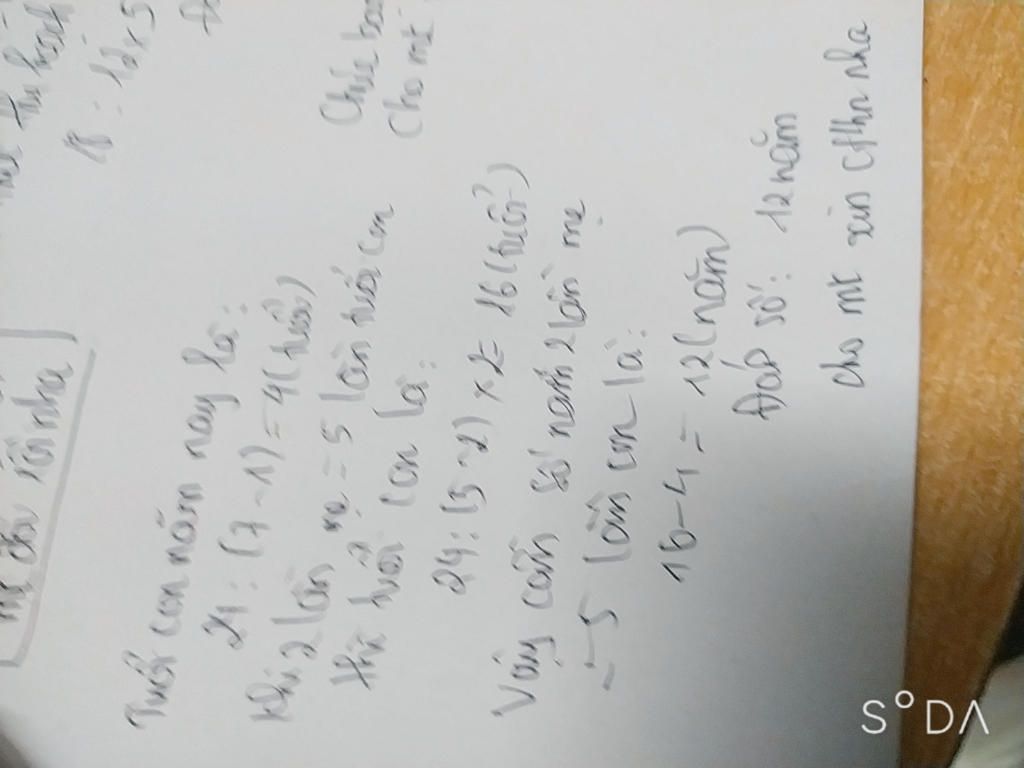 thu hoạch
18 : 12 x 5
rồi nha
Tuổi con năm nay là:
24 : (7 - 1) = 4 (tuổi)
Khi 2 lần mẹ = 5 lần tuổi con
thì tuổi con là:
24 : (5 - 2) x 2 = 16 (tuổi)
Vậy cần số năm 2 lần mẹ
= 5 lần con là:
16 - 4 = 12 (năm)
Đáp số: 12 năm
Chúc bạn
Cho mt
cho mt xin ctlhn nha
SODA